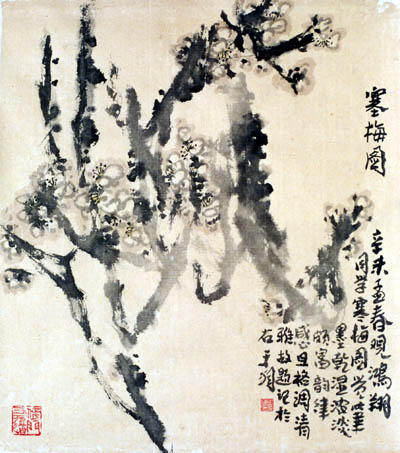 寒梅图
辛未孟春观鸿翔
同学寒梅图觉此笔
墨乾湿浓淡
颇富韵律
感且格调清
雅故题记于